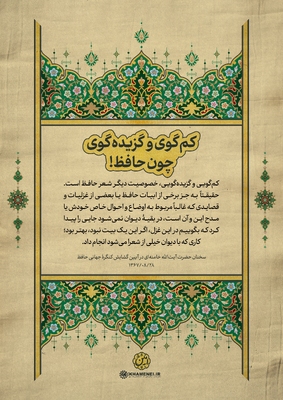 کم گوی و گزیده گوی
چون حافظ!
کم‌گویی و گزیده‌گویی، خصوصیت دیگر شعر حافظ است.
حقیقتاً به جز برخی از ابیات حافظ یا بعضی از غزلیات و
قصایدی که غالباً مربوط به اوضاع و احوال خاص خودش یا
مدح این و آن است، در بقیهٔ دیوان نمی‌شود جایی را پیدا
کرد که بگوییم در این غزل، اگر این یک بیت نبود، بهتر بود؛
کاری که با دیوان خیلی از شعرا می‌شود انجام داد.
سخنان حضرت آیت‌الله خامنه‌ای در آیین گشایش کنگرهٔ جهانی حافظ
۱۳۶۷/۰۸/۲۸
KHAMENEI.IR